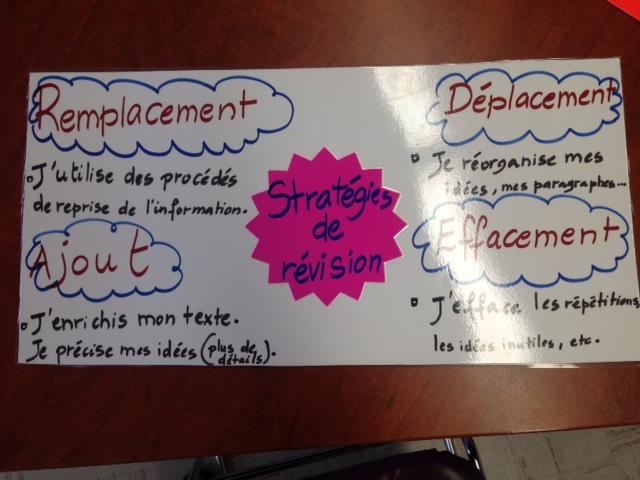 Stratégies
de
révision
Remplacement
J'utilise des procédés
de reprise de l'information.
Ajout
J'enrichis mon texte.
Je précise mes idées (plus de
détails).
Déplacement
Je réorganise mes
idées, mes paragraphes...
Effacement
J'efface les répétitions,
les idées inutiles, etc.